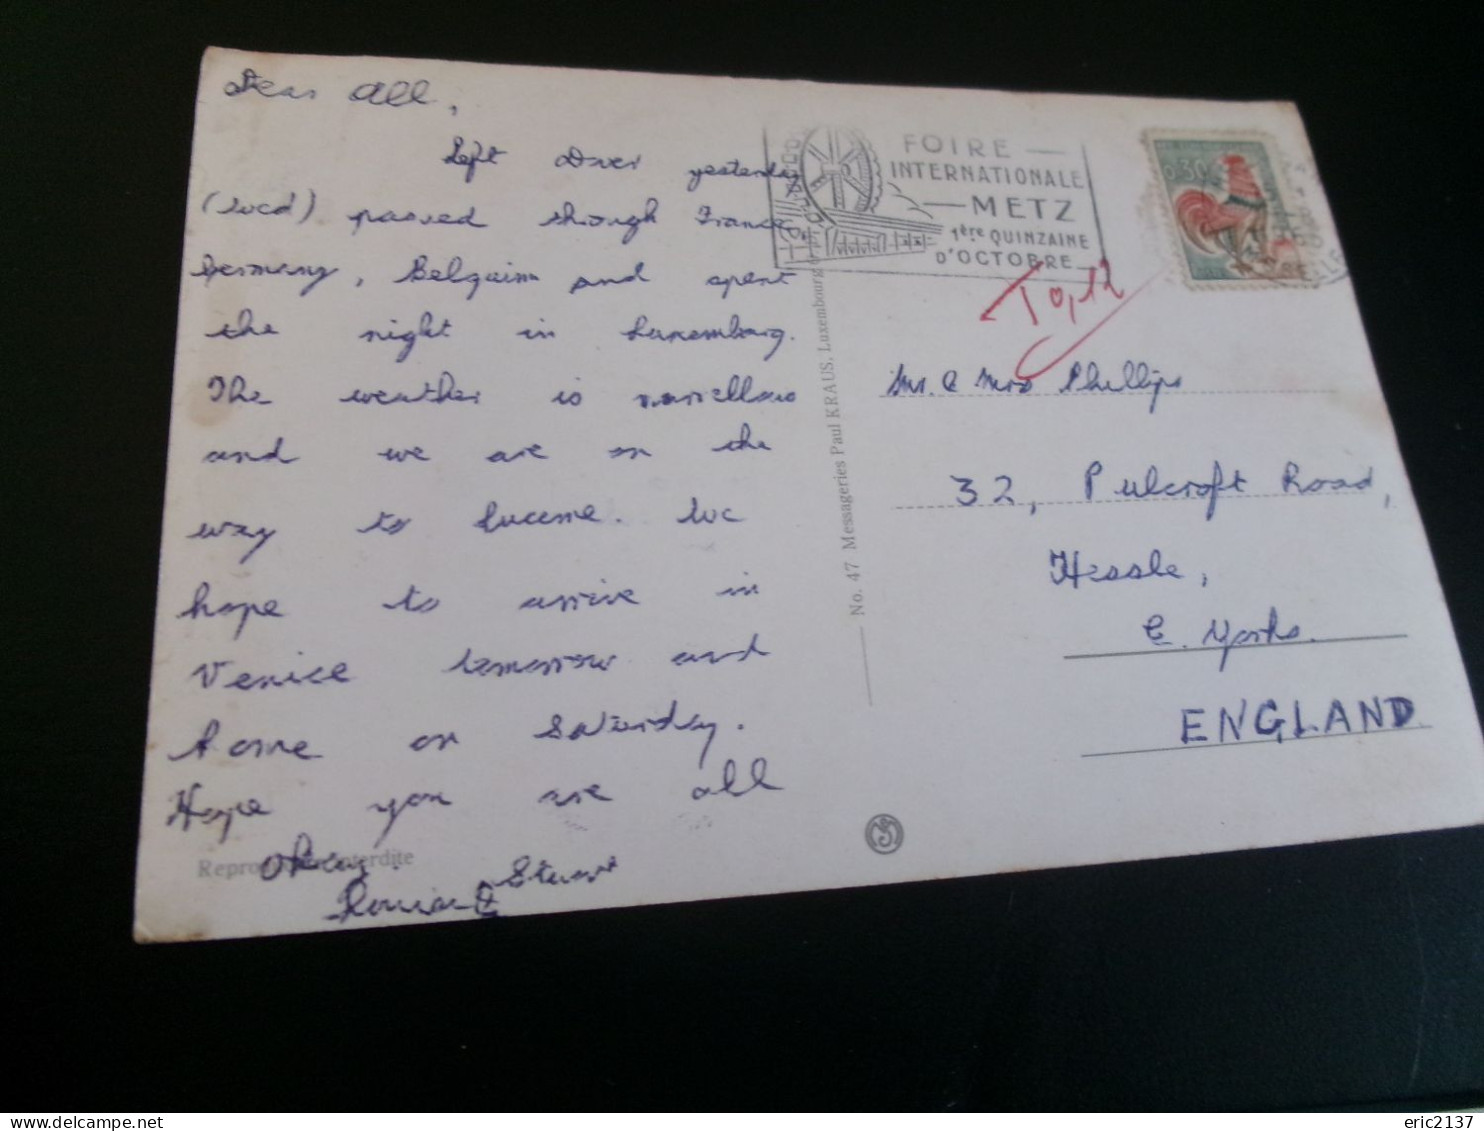 Dear All,
Left Dover yesterday
(wed) passed through France
Germany, Belguim and spent
the night in Luxemburg.
The weather is marvellous
and we are on the
way to Lucerne. We
hope to arrive in
Venice tomorrow and
Rome on Saturday.
Hope you are all
okay.
Stuart
Reproduction interdite
No. 47 Messageries Paul KRAUS, Luxembourg
FOIRE
INTERNATIONALE
METZ
1ère QUINZAINE
D'OCTOBRE
0,30
T 0,12
Mr. & Mrs Phillips
32, Pulcroft Road,
Hessle,
E. Yorks.
ENGLAND
delcampe.net
eric2137